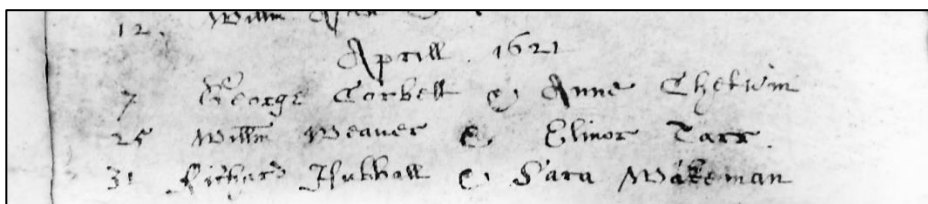 12. Willm
Aprill. 1621
7 George Corbett & Anne Chetwin
25 Willm Weaver & Elinor Tarr.
31 Richard & Sara Wakeman